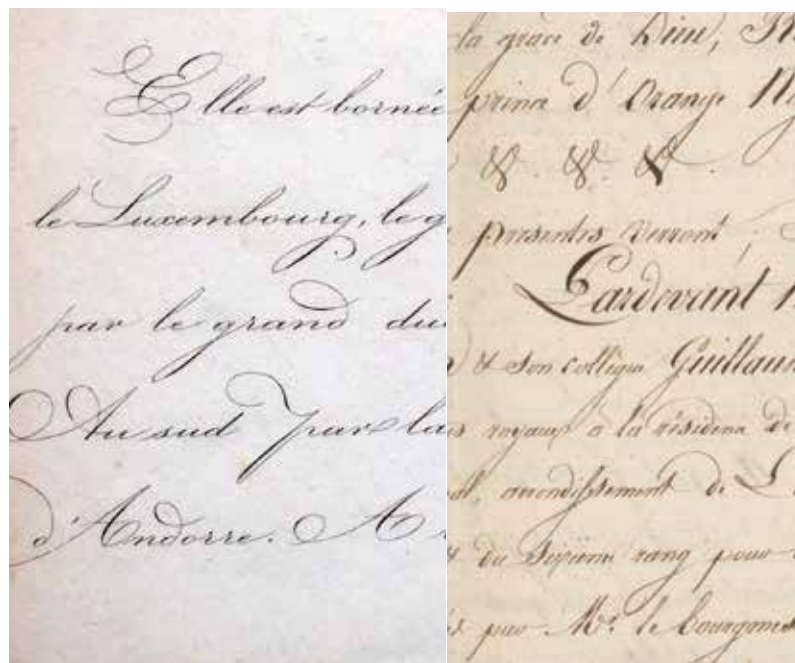 Elle est bornée
le Luxembourg, le g
par le grand du
Au sud par la
d'Andorre. A
la grace de Dieu,
prince d'Orange
& & &
presentes verront ;
Pardevant
& son collègue Guillaum
royaux a la résidence de
arrondissement de L
du sixieme rang pour
par Mr. le bourgmes